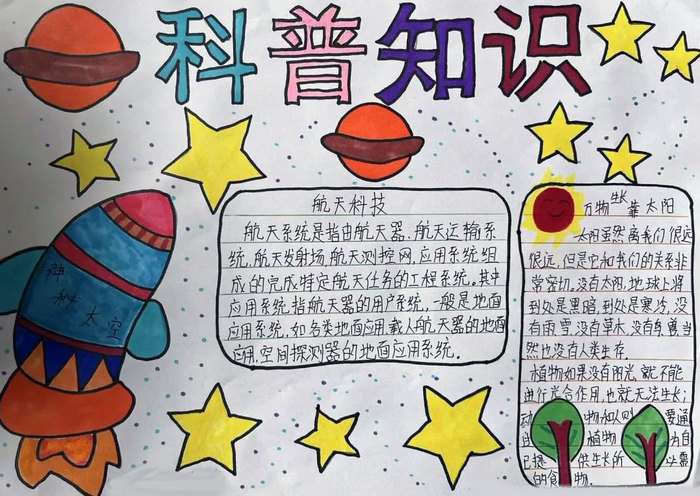 科普知识
神秘太空
航天科技
航天系统是指由航天器、航天运输系
统、航天发射场、航天测控网、应用系统组
成的完成特定航天任务的工程系统。其中
应用系统指航天器的用户系统,一般是地面
应用系统,如各类地面应用、载人航天器的地面
应用、空间探测器的地面应用系统。
万物生长靠太阳
太阳虽然离我们很远
很远,但是它和我们的关系非
常密切,没有太阳,地球上将
到处是黑暗,到处是寒冷,没
有雨、雪,没有草木,没有鸟、兽,当
然也没有人类生存。
植物如果没有阳光,就不能
进行光合作用,也就无法生长;
动 物和人则 要通
植物 为自
己提 供生长所 需
的食 物。